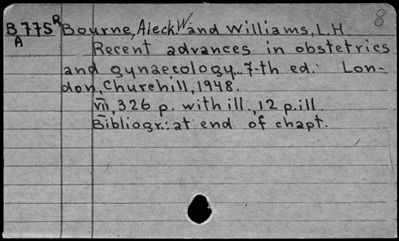 8
B 775 R Bourne, Aleck W. and Williams, L.H.
A Recent advances in obstetrics
and gynaecology... 7-th ed. Lon-
don, Churchill, 1948.
VII, 326 p. with ill., 12 p. ill.
Bibliogr.: at end of chapt.